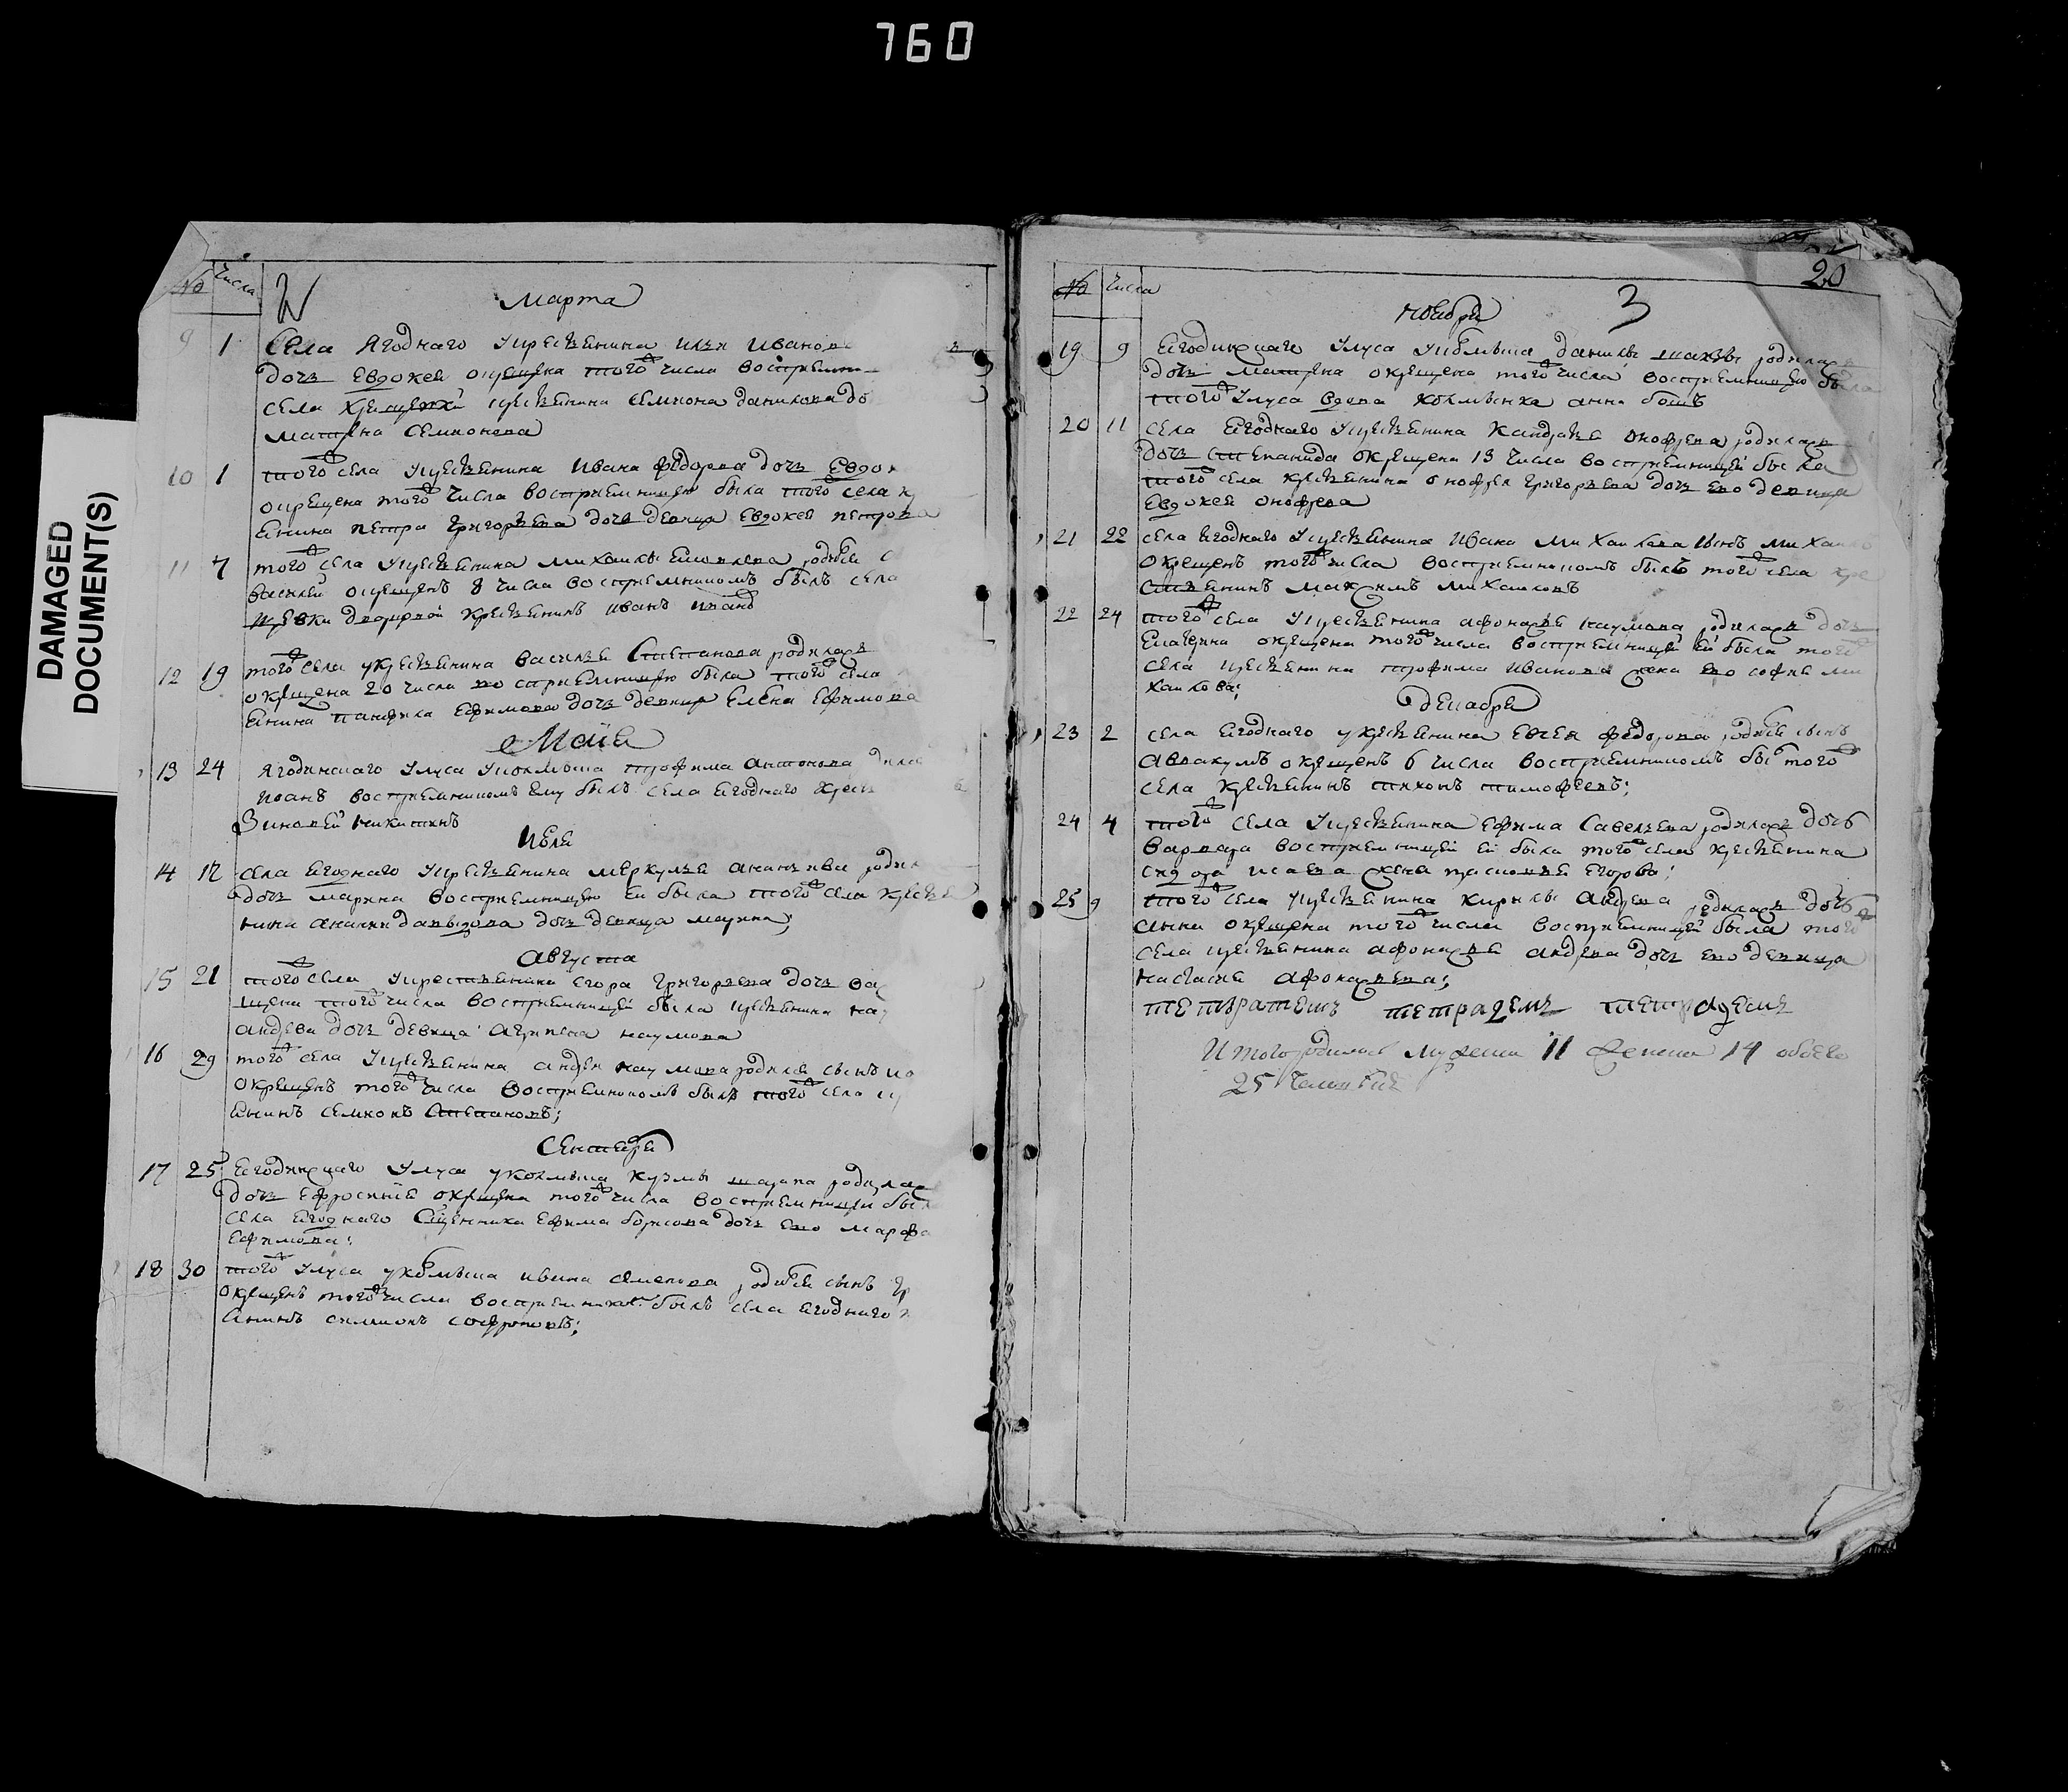 760
DAMAGED
DOCUMENT(S)
№ числа
2
Марта
9 1 Села Ягоднаго укрестьянина Ильи Иванов
дочь Евдокея окрещена того числа восприемни
села крестьянина Семиона Данилова до
Матрена Семионова
10 1 того села укрестьянина Ивана Федорова дочь Евдок
окрещена того числа восприемницею была того села к
янина Петра Григорьева дочь девица Евдокея Петрова
11 7 того села укрестьянина Михаилы родился
Василей окрещенъ 8 числа восприемникомъ былъ села
крестьянинъ Иванъ
12 19 того села укрестьянина Василья Степанова родилась
окрещена 20 числа восприемницею была того села
янина Панфила Ефимова дочь девица Елена Ефимова
Маия
13 24 Ягодинскаго Улуса укалмыка Трофима Антонова
Иоанъ восприемникомъ ему былъ села Ягоднаго крест
Зиновей Никитинъ
Июля
14 12 села Ягоднаго укрестьянина Меркулья Ананьива родил
дочь Марина восприемницею ей была того села кресья
нина Анании Давыдова дочь девица Марина;
Августа
15 21 того села укрестьянина Егора Григорьева дочь
щена того числа восприемницей была кресьянина На
Андрева дочь девица Агрипена Наумова
16 29 того села укресьянина Андрея Наумова родился сынъ
окрещенъ того числа восприемникомъ былъ того села
янинъ Семионъ Степановъ;
Сентября
17 25 Ягодинскаго Улуса укалмыка Кузмы родилас
дочь Ефросиния окрещена того числа восприемницей бы
села Ягоднаго Священника Ефима Борисова дочь ево Марфа
Ефимова;
18 30 того Улуса укалмыка Ивана Семенова родился сынъ
окрещенъ того числа восприемником былъ села Ягоднаго
янинъ Симионъ Софроновъ;
№ числа
20
Ноября
3
19 9 Ягодинскаго Улуса укалмыка Данилы родилась
дочь Матрена окрещена того числа восприемницею была
того Улуса вдова калмычка Анна
20 11 села Ягоднаго укресьянина Кандратья Онофрева родилась
дочь Степанида окрещена 13 числа восприемницей была
того села кресьянина Онофрея Григорьева дочь ево девица
Евдокея Онофрева
21 22 села Ягоднаго укресьянина Ивана Михаилова сынъ Михаил
окрещенъ того числа восприемникомъ былъ того села кре
сьянинъ Максимъ Михаиловъ
22 24 того села укресьянина Афонасья Наумова родилась дочь
окрещена того числа восприемницей ей была того
села кресьянина Трофима Иванова жена ево Софья Ми
хаилова;
Декабря
23 2 села Ягоднаго укресьянина Евсея Федорова родился сынъ
Авракумъ окрещенъ 6 числа восприемникомъ бы того
села кресьянинъ Тихонъ Тимофеевъ;
24 4 того села укресьянина Ефима Савельева родилась дочь
Варвара восприемницей ей была того села кресьянина
Сидора Исаева жена Егорова;
25 9 того села укресьянина Кирилы Андрева родилась дочь
Анна окрещена того числа восприемницей была того
села кресьянина Афонасья Андрева дочь ево девица
Настасия Афонасьева;
Итого родилось мужеска 11 женска 14 обоего
25 человекъ